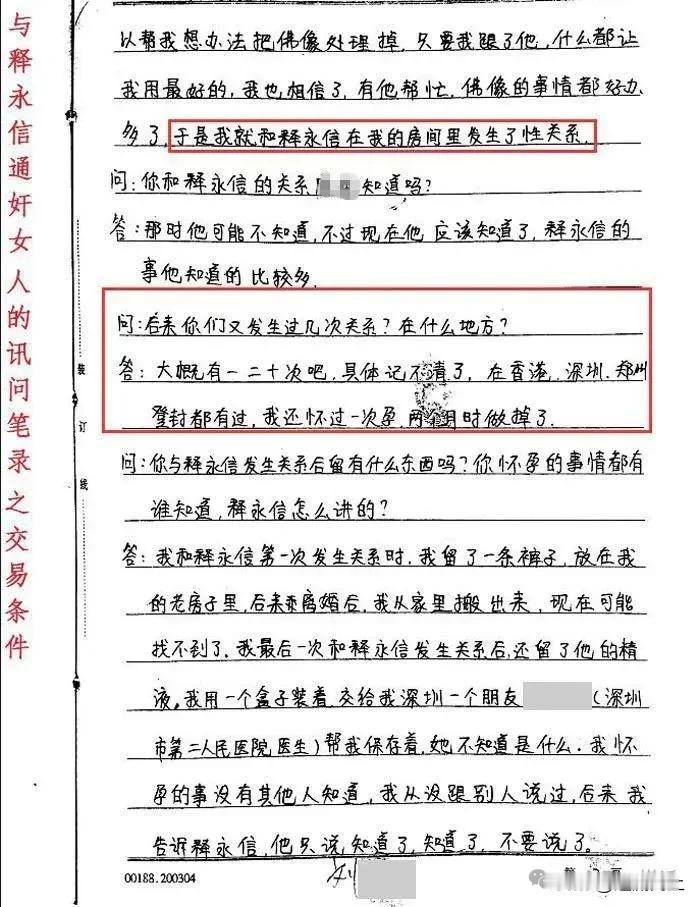 与释永信通奸女人的讯问笔录之交易条件
以帮我想办法把佛像处理掉,只要我跟了他,什么都让
我用最好的,我也相信了,有他帮忙,佛像的事情都好办
多了,于是我就和释永信在我的房间里发生了性关系.
问:你和释永信的关系 知道吗?
答:那时他可能不知道,不过现在他应该知道了,释永信的
事他知道的比较多.
问:后来你们又发生过几次关系?在什么地方?
答:大概有一二十次吧,具体记不清了,在香港.深圳.郑州
登封都有过,我还怀过一次孕,两个月时做掉了.
问:你与释永信发生关系后留有什么东西吗?你怀孕的事情都有
谁知道,释永信怎么讲的?
答:我和释永信第一次发生关系时,我留了一条裤子,放在我
的老房子里,后来我离婚后,我从家里搬出来,现在可能
找不到了.我最后一次和释永信发生关系后,还留了他的精
液,我用一个盒子装着交给我深圳一个朋友 (深圳
市第二人民医院医生)帮我保存着,她不知道是什么.我怀
孕的事没有其他人知道,我从没跟别人说过,后来我
告诉释永信,他只说知道了,知道了,不要说了。
装
订
线
00188.200304
第 页